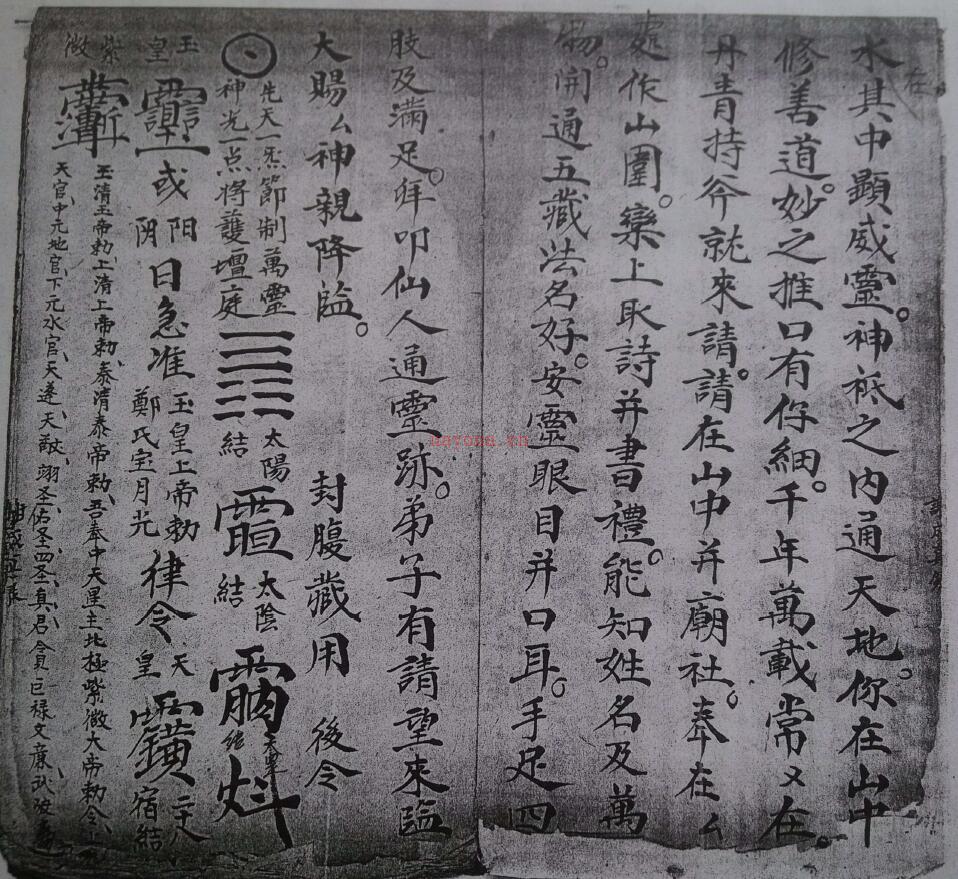 在
水其中顯威靈。神祗之内通天地。你在山中
修善道。妙之推口有仔細。千年萬載常又在。
丹青持斧就來請。請在山中并廟社。奉在厶
處作山圍。欒上取詩并書禮。能知姓名及萬
物。開通五藏法名好。安靈眼目并口耳。手足四
肢及滿足。叩仙人通靈跡。弟子有請望來臨
大賜厶神親降臨。 封腹藏用 後令
先天一炁節制萬靈
神光一点将護壇庭
太陽
結
太陰
結
玉皇
或
陽
阴
日急准
玉皇上帝勅
鄭氏宝月光
律令
天皇
二十八
宿結
紫微
玉清玉帝勅、上清上帝勅、泰清泰帝勅、吾奉中天星主北極紫微大帝勅令、上元
天官、中元地官、下元水官、天蓬、天猷、翊圣、佑圣四圣真君、貪巨禄文廉武破
nayona.cn